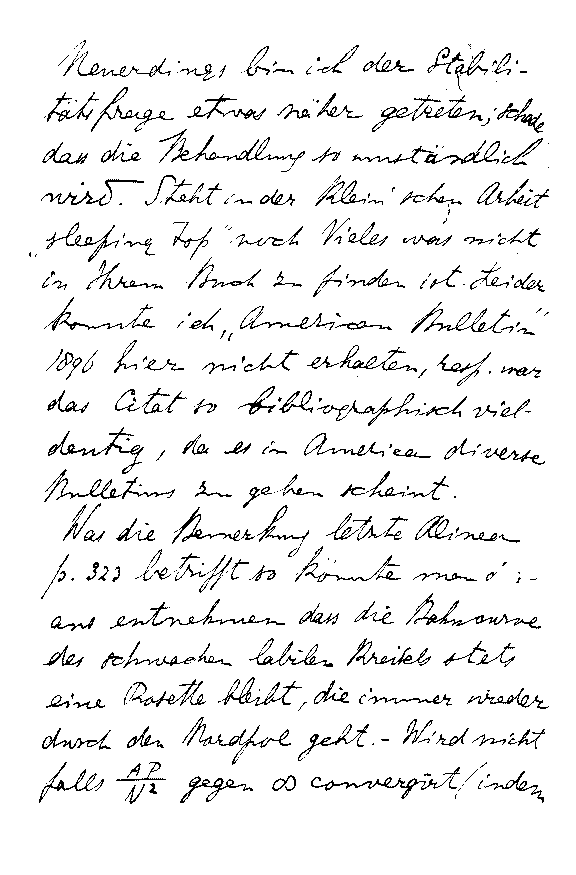 Neuerdings bin ich der Stabili-
tätsfrage etwas näher getreten; schade
dass die Behandlung so umständlich
wird. Steht in der Klein'schen Arbeit
„sleeping top" noch Vieles was nicht
in Ihrem Buch zu finden ist. Leider
konnte ich „American Bulletin"
1896 hier nicht erhalten, resp. war
das Citat so bibliographisch viel-
deutig, da es in America diverse
Bulletins zu geben scheint.
Was die Bemerkung letzte Alinea
p. 323 betrifft so könnte man
aus entnehmen dass die Bahncurve
des schwachen labilen Kreisels stets
eine Rosette bleibt, die immer wieder
durch den Nordpol geht. - Wird nicht
falls AP/N² gegen ∞ convergirt (indem